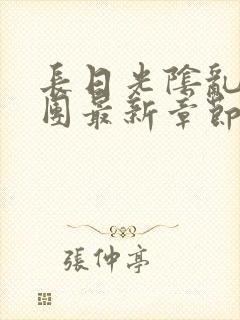 長日光陰亂
團最新章節
張仲亭